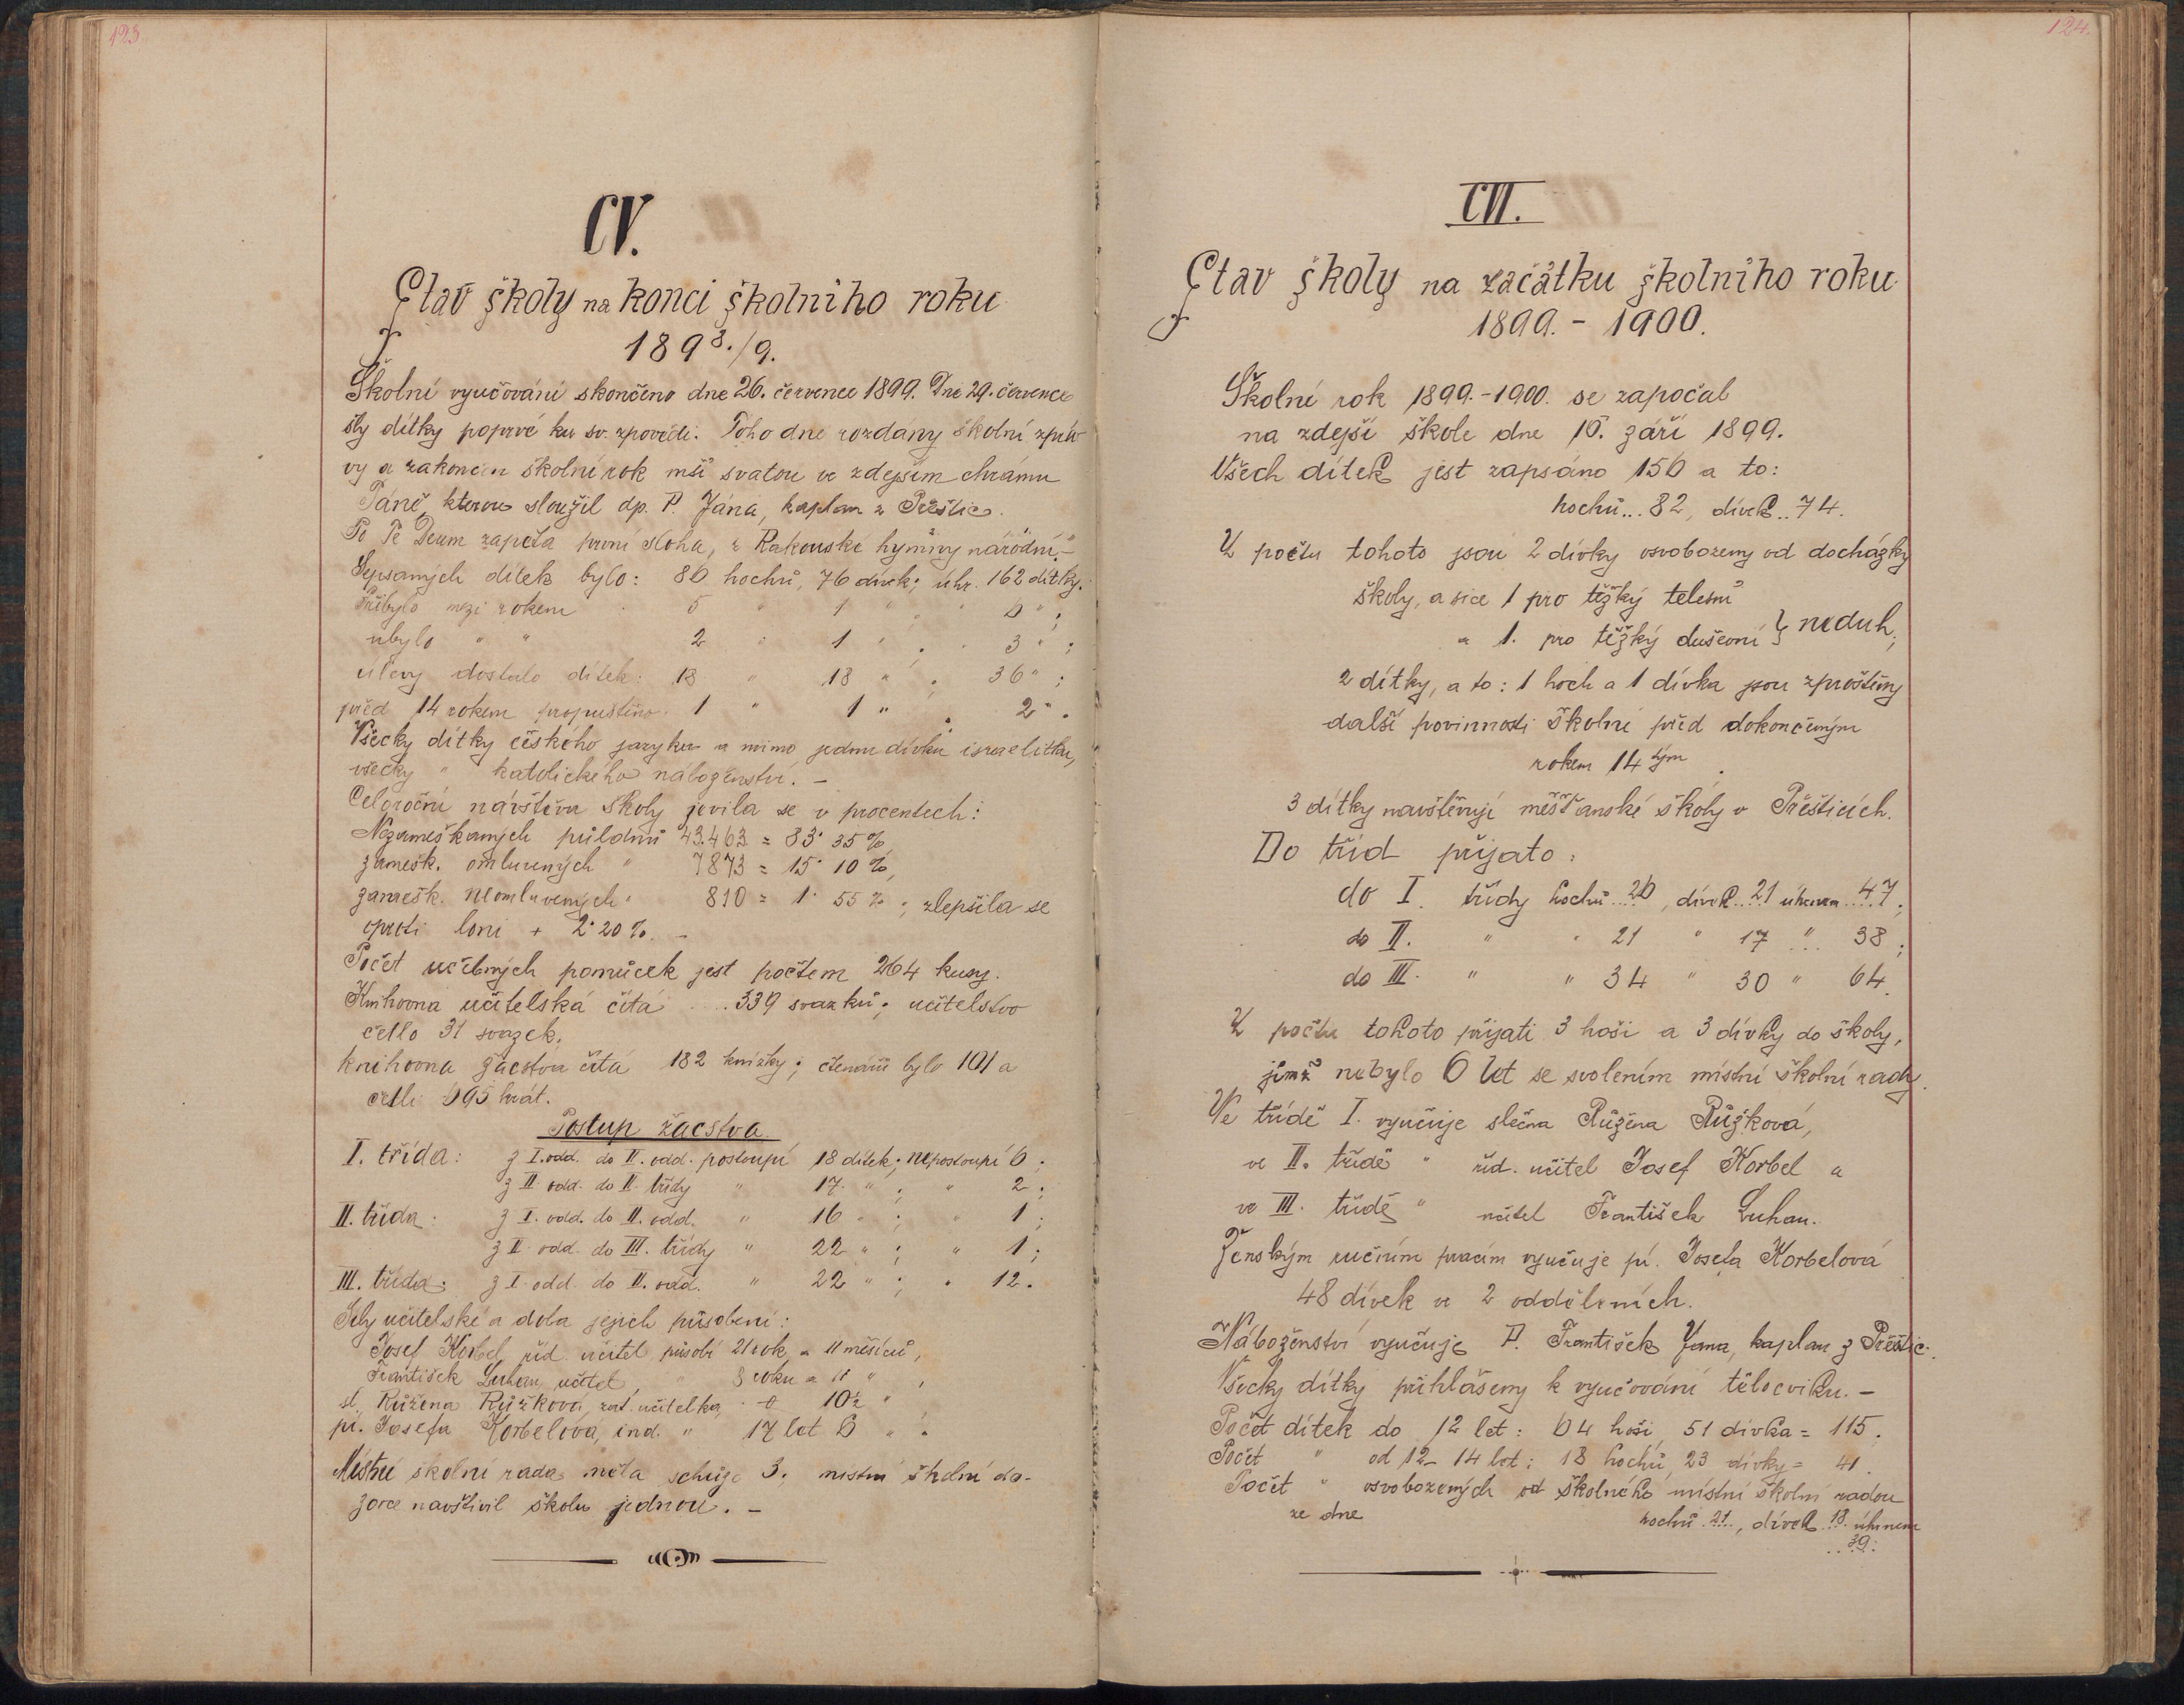 123.
CV.
Stav školy na konci školního roku
1898./9.
Školní vyučování skončeno dne 26. července 1899. Dne 29. července
šly dítky poprvé ku sv. zpovědi. Toho dne rozdany školní zprá-
vy a zakončen školní rok mší svatou ve zdejším chrámu
Páně, kterou sloužil dp. P. Jána, kaplan z Přeštic.
Po Te Deum zapěta první sloha, z Rakouské hymny národní,-
Sepsaných dítek bylo: 86 hochů, 76 dívek; úhr. 162 dítky.
Přibylo mezi rokem 5 " 1 " " 6 " ;
ubylo " " 2 " 1 " ; " 3 " ;
úlevy dostalo dítek: 18 " 18 " ; 36 " ;
před 14 rokem propuštěno 1 " 1 " . 2 " .
Všecky dítky českého jazyka a mimo jednu dívku israelitku,
všecky " katolického náboženství. -
Celoroční návštěva školy jevila se v procentech:
Nezameškaných půldnů 43.463 = 83·35 %
zamešk. omluvených " 7873 = 15·10 %,
zamešk. neomluvených " 810 = 1·55 % ; zlepšila se
oproti loni + 2·20 %. -
Počet učebných pomůcek jest počtem 264 kusy.
Knihovna učitelská čítá ... 339 svazků; učitelstvo
četlo 31 svazek.
knihovna žactva čítá 182 knížky; čtenářů bylo 101 a
četli 695 krát.
Postup žactva
I. třída: z I. odd. do II. odd. postoupí 18 dítek; nepostoupí 6 ;
z II. odd. do II. třídy " 17 " ; " 2 ;
II. třída: z I. odd. do II. odd. " 16 " ; " 1 ;
z II. odd. do III. třídy " 22 " ; " 1 ;
III. třída: z I. odd. do II. odd. " 22 " ; " 12.
Síly učitelské a doba jejich působení:
Josef Korbel, říd. učitel, působí 21 rok a 11 měsíců,
František Luhan, učitel " 8 roků a 11 " ,
sl. Růžena Růžková, zat. učitelka, 10½ "
pí. Josefa Korbelová, ind. " 17 let 6 " .
Místní školní rada měla schůze 3; místní školní do-
zorce navštívil školu jednou. -
124.
CVI.
Stav školy na začátku školního roku
1899. - 1900.
Školní rok 1899.-1900. se započal
na zdejší škole dne 16. září 1899.
Všech dítek jest zapsáno 156 a to:
hochů... 82, dívek.. 74.
Z počtu tohoto jsou 2 dívky osvobozeny od docházky
školy, a sice 1 pro těžký tělesní
a 1. pro těžký duševní } neduh;
2 dítky, a to: 1 hoch a 1 dívka jsou zproštěny
další povinnosti školní před dokončeným
rokem 14tým.
3 dítky navštěvují měšťanské školy v Přešticích.
Do tříd přijato:
do I. třídy hochů...26, dívek...21 úhrnem....47;
do II. " " 21 " 17 " ... 38 ;
do III. " " 34 " 30 " 64.
Z počtu tohoto přijati 3 hoši a 3 dívky do školy,
jimž nebylo 6 let se svolením místní školní rady.
Ve třídě I. vyučuje slečna Růžena Růžková,
ve II. třídě " říd. učitel Josef Korbel a
ve III. třídě " učitel František Luhan.
Ženským ručním pracím vyučuje pí. Josefa Korbelová
48 dívek ve 2 odděleních.
Náboženství vyučuje P. František Jana, kaplan z Přeštic.
Všecky dítky přihlášeny k vyučování tělocviku. -
Počet dítek do 12 let: 64 hoši, 51 dívka = 115.
Počet " od 12 - 14 let: 18 hochů, 23 dívky = 41.
Počet " osvobozených od školného místní školní radou
ze dne hochů..21.., dívek..18. úhrnem
...39.